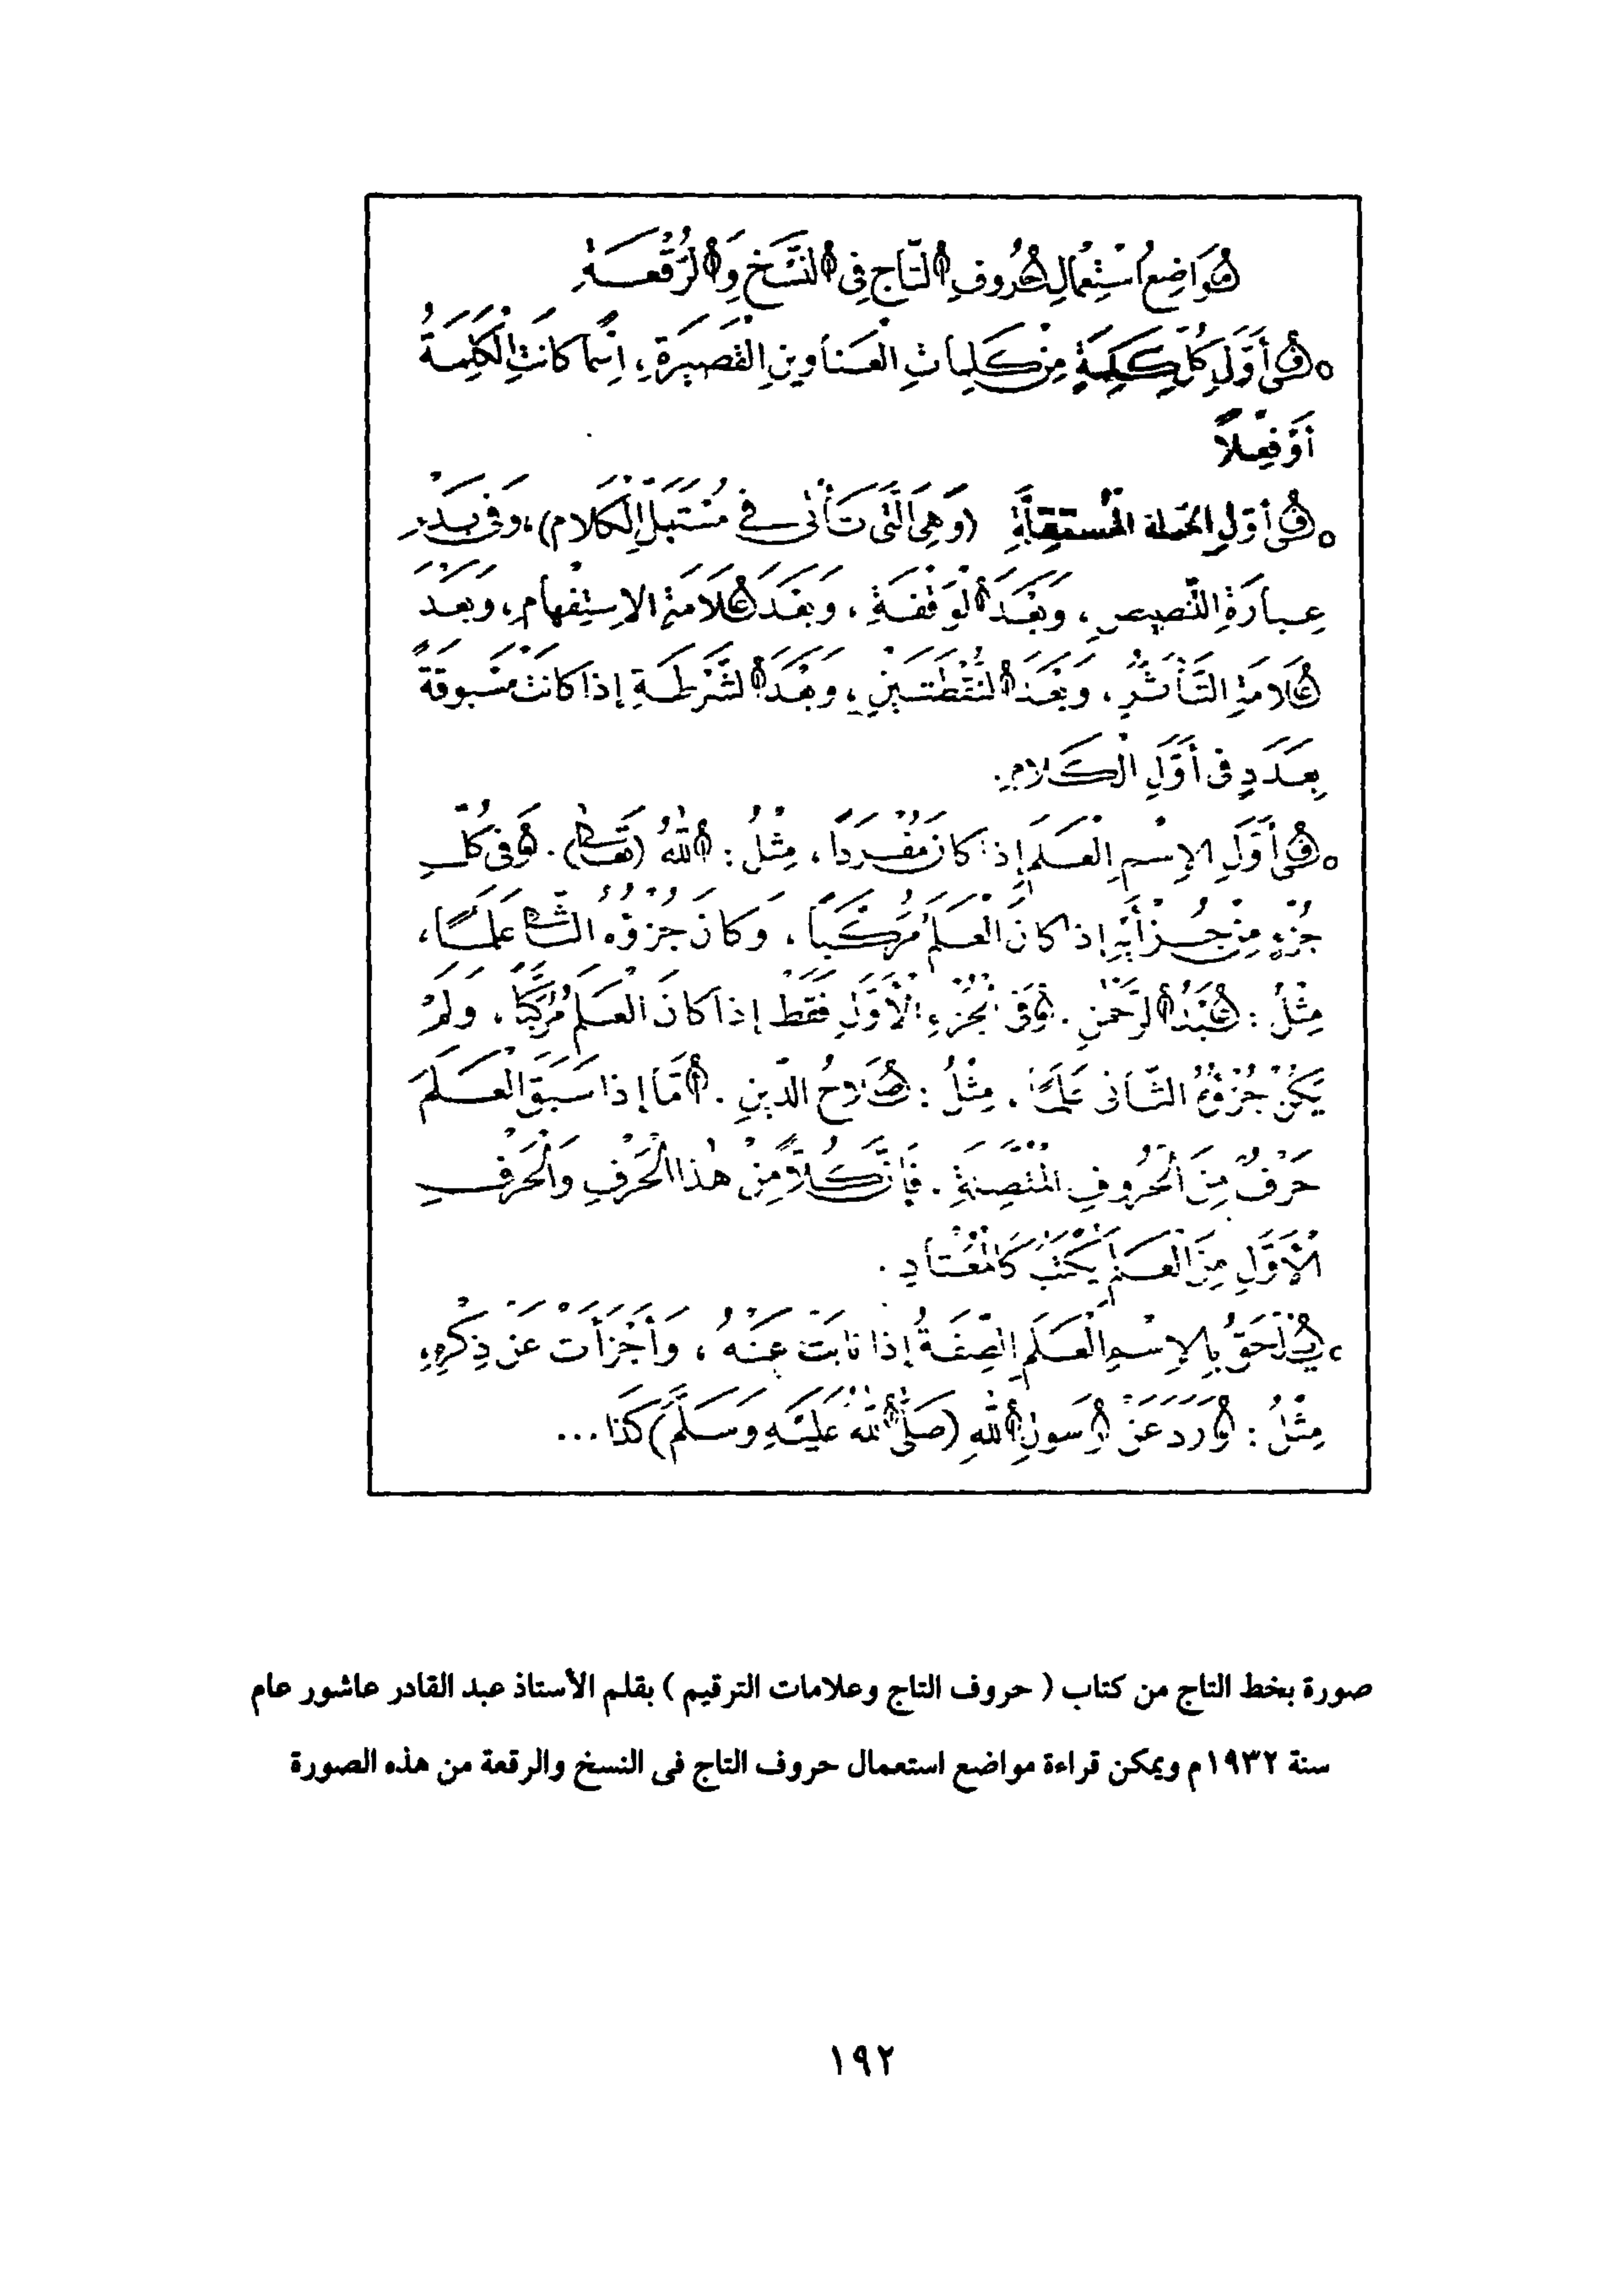 مَوَاضِعُ اسْتِعْمَالِ حُرُوفِ التَّاجِ فِى النَّسْخِ وَالرُّقْعَةِ
○ فِى أَوَّلِ كُلِّ كَلِمَةٍ مِنْ كَلِمَاتِ الْعَنَاوِينِ الْقَصِيرَةِ، اِسْمًا كَانَتِ الْكَلِمَةُ
أَوْ فِعْلاً
○ فِى أَوَّلِ الجملة المُسْتَقِلَّةِ (وَهِىَ الَّتِى تَأْتِى فِى مُسْتَهَلِّ الْكَلَامِ)، وَفِى بَدْءِ
عِبَارَةِ التَّنْصِيصِ، وَبَعْدَ الْوَقْفَةِ، وَبَعْدَ عَلَامَةِ الاِسْتِفْهَامِ، وَبَعْدَ
عَلَامَةِ التَّأَثُّرِ، وَبَعْدَ النُّقْطَتَيْنِ، وَبَعْدَ الشَّرْطَةِ إِذَا كَانَتْ مَسْبُوقَةً
بِعَدَدٍ فِى أَوَّلِ الْكَلَامِ.
○ فِى أَوَّلِ الاِسْمِ الْعَلَمِ إِذَا كَانَ مُفْرَدًا، مِثْلُ: اللّٰهُ (تَعَالَى). وَفِى كُلِّ
جُزْءٍ مِنْ جُزْأَيْهِ إِذَا كَانَ الْعَلَمُ مُرَكَّبًا، وَكَانَ جُزْؤُهُ الثَّانِى عَلَمًا،
مِثْلُ: عَبْدُ الرَّحْمٰنِ. وَفِى الْجُزْءِ الْأَوَّلِ فَقَطْ إِذَا كَانَ الْعَلَمُ مُرَكَّبًا، وَلَمْ
يَكُنْ جُزْؤُهُ الثَّانِى عَلَمًا، مِثْلُ: صَلَاحُ الدِّينِ. أَمَّا إِذَا سَبَقَ الْعَلَمَ
حَرْفٌ مِنَ الْحُرُوفِ الْمُتَّصِلَةِ. فَإِنَّ كُلاًّ مِنْ هٰذَا الْحَرْفِ وَالْحَرْفِ
الْأَوَّلِ مِنَ الْعَلَمِ يُكْتَبُ كَالْمُعْتَادِ.
○ يُلْحَقُ بِالاِسْمِ الْعَلَمِ الصِّفَةُ إِذَا نَابَتْ عَنْهُ، وَأَجْزَأَتْ عَنْ ذِكْرِهِ،
مِثْلُ: وَرَدَ عَنْ رَسُولِ اللّٰهِ (صَلَّى اللّٰهُ عَلَيْهِ وَسَلَّمَ) كَذَا...
صورة بخط التاج من كتاب ( حروف التاج وعلامات الترقيم ) بقلم الأستاذ عبد القادر عاشور عام
سنة ١٩٣٢م ويمكن قراءة مواضع استعمال حروف التاج فى النسخ والرقعة من هذه الصورة
١٩٢